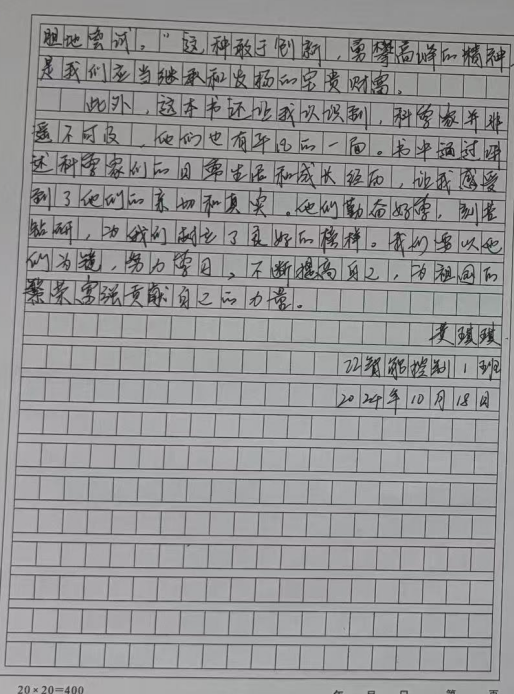 胆地尝试。"这种敢于创新，勇攀高峰的精神，
是我们应当继承和发扬的宝贵财富。
此外，这本书还让我认识到，科学家并非
遥不可及，他们也有平凡的一面。书中通过讲
述科学家们的日常生活和成长经历，让我感受
到了他们的亲切和真实。他们勤奋好学，刻苦
钻研，为我们树立了良好的榜样。我们要以他
们为镜，努力学习，不断提高自己，为祖国的
繁荣富强贡献自己的力量。
黄琪琪
22智能控制1班
2024年10月18日
20×20=400
年 月 日 第 页